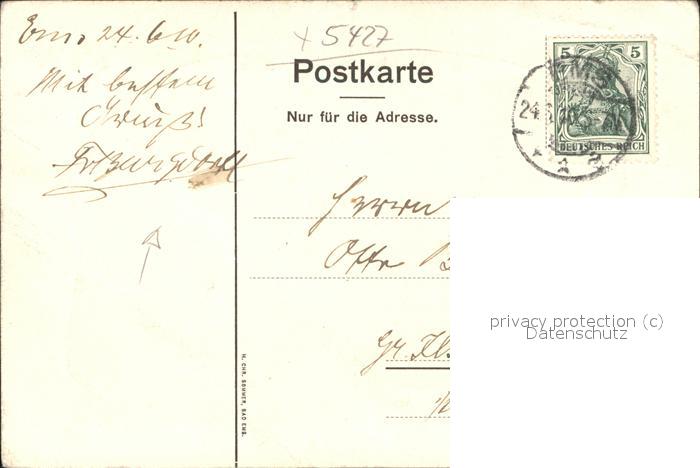 Ems 24.6.10.
Mit bestem
Gruß!
Fr Burgdorff
+ 5427
Postkarte
Nur für die Adresse.
5 5
EMS
24.
DEUTSCHES REICH
Herrn
Otto
Gr.
H. CHR. SOMMER, BAD EMS.
privacy protection (c)
Datenschutz